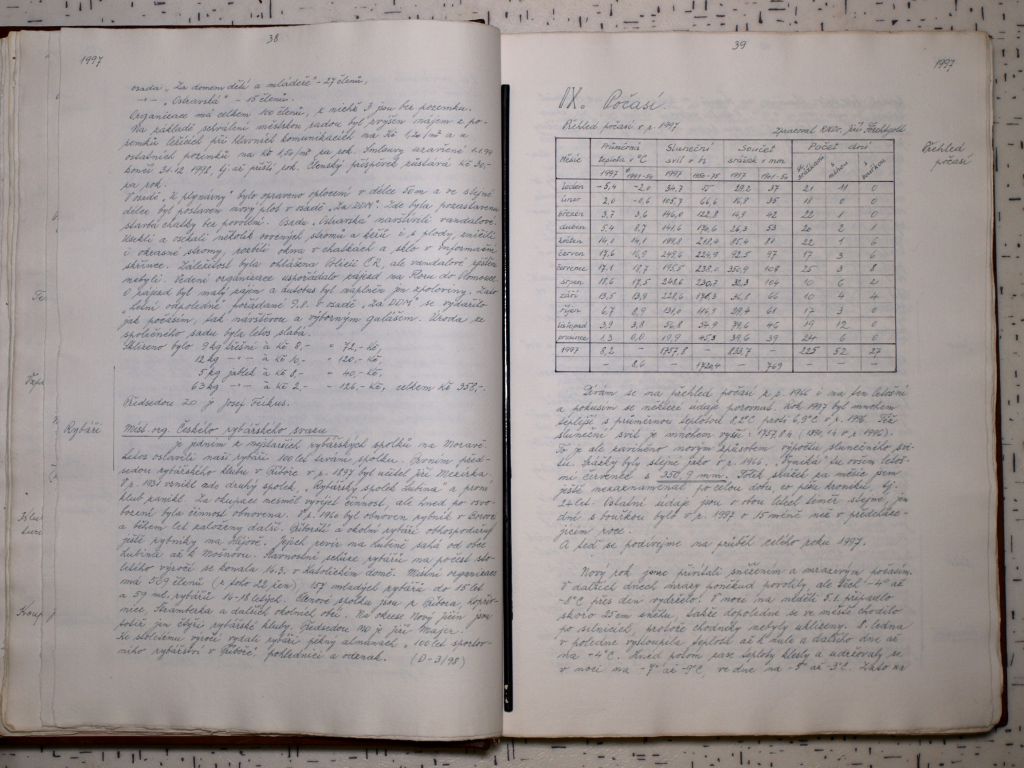 38
1997
osada „Za domem dětí a mládeže" - 27 členů,
-"- „Ostravská" - 15 členů.
Organizace má celkem 100 členů, z nichž 3 jsou bez pozemku.
Na základě schválení městskou radou byl zvýšen nájem z po-
zemků ležících při hlavních komunikacích na Kč
ostatních pozemků na Kč /m² za rok. Smlouvy uzavřené
končí 31.12. tj. až příští rok. Členský příspěvek zůstává Kč 30,-
za rok.
V osadě „K plynárně" bylo opraveno oplocení v délce 75 m a ve stejné
délce byl postaven nový plot v osadě „Za DDM". Zde byla pozastavena
stavba chatky bez povolení. Osadu „Ostravská" navštívili vandalové.
Usekli a osekali několik ovocných stromů a keřů i s plody, zničili
i okrasné stromy, rozbili okna v chatkách a sklo v informační
skříňce. Záležitost byla ohlášena Policii ČR, ale vandalové zjištěni
nebyli. Vedení organizace uspořádalo zájezd na Floru do Olomouce.
O zájezd byl malý zájem a autobus byl naplněn jen z poloviny. Zato
„Letní odpoledne" pořádané 9.8. v osadě „Za DDM" se vydařilo
jak počasím, tak návštěvou a výborným gulášem. Úroda ze
společného sadu byla letos slabá.
Sklizeno bylo 9 kg třešní à Kč 8,- = 72,- Kč,
12 kg -"- à Kč 10,- = 120,- Kč,
5 kg jablek à Kč 8,- = 40,- Kč,
63 kg -"- à Kč 2,- = 126,- Kč, celkem Kč 358,-.
Předsedou ZO je Josef Feikus.
Rybáři
Míst. org. Českého rybářského svazu
je jedním z nejstarších rybářských spolků na Moravě.
Letos oslavili naši rybáři 100 let trvání spolku. Prvním před-
sedou rybářského klubu v Příboře v r. 1897 byl učitel Jiří Mezirka.
V r. vznikl zde druhý spolek, „Rybářský spolek Lubina" a první
klub zanikl. Za okupace nesměl vyvíjet činnost, ale hned po osvo-
bození byla činnost obnovena. V r. byl obnoven rybník v Borové
a během let založeny další. Příborští a okolní rybáři obhospodařují
ještě rybníky na Hájově. Jejich revír na Lubině sahá od obce
Lubina až k Mošnovu. Slavnostní schůze rybářů na počest sto-
letého výročí se konala 16.3. v katolickém domě. Místní organizace
má 569 členů (z toho 22 žen) 157 mladých rybářů do 15 let
a 59 ml. rybářů 16-18 letých. Členové spolku jsou z Příbora, Kopřiv-
nice, Štramberka a dalších okolních obcí. Na okrese Nový Jičín jsou
totiž jen čtyři rybářské kluby. Předsedou MO je Jiří Majer.
Ke stoletému výročí vydali rybáři pěkný almanach „100 let sportov-
ního rybářství v Příboře" pohlednici a odznak. (D-3/98)
39
1997
IX. Počasí
Přehled počasí v r. 1997
Přehled
počasí
Měsíc Průměrná teplota v °C Sluneční svit v h. Součet srážek v mm Počet dní
1997 1997 1997
leden -5,4 -2,0 34,7 55 29,2 37 21 11 0
únor 2,0 -0,6 105,7 66,6 16,8 35 18 0 0
březen 3,7 3,6 146,0 122,8 14,9 42 22 0 0
duben 5,4 8,7 141,6 170,6 26,3 53 20 2 1
květen 14,0 14,0 218,4 85,4 81 22 1 6
červen 17,6 16,9 249,6 224,9 92,5 97 17 3 6
červenec 17,1 18,7 195,5 238,0 350,9 108 25 3 8
srpen 18,6 17,5 248,6 230,7 32,3 104 10 6 2
září 13,5 13,9 228,6 178,3 36,8 66 10 4 4
říjen 6,7 8,9 131,0 39,4 61 17 3 0
listopad 3,9 3,8 56,8 54,9 79,6 46 19 12 0
prosinec 1,3 0,0 19,9 45,3 39,6 39 24 6 0
1997 8,2 – 1757,8 – 833,7 – 225 52 27
– 8,6 – 1720,4 – 769 – – –
Dívám se na přehled počasí z r. 1996 i na ten letošní
a pokusím se některé údaje porovnat. Rok 1997 byl mnohem
teplejší s průměrnou teplotou 8,2°C proti 6,9°C v r. 1996. Též
sluneční svit je mnohem vyšší: 1757,8 h
To je ale zaviněno novým způsobem výpočtu slunečního svi-
tu. Srážky byly stejné jako v r. 1996. Vyniká tu ovšem letoš-
ní červenec s 350,9 mm. Tolik srážek za měsíc jsem
ještě nezaznamenal po celou dobu co píši kroniku, tj.
24 let. Ostatní údaje jsou v obou letech téměř stejné, jen
dní s bouřkou bylo v r. 1997 o 15 méně než v předcháze-
jícím roce.
A teď se podívejme na průběh celého roku 1997.
Nový rok jsme přivítali sněžením a mrazivým počasím.
V dalších dnech mrazy poněkud povolily, ale těch -4° až
-8°C přes den vydrželo. V noci na neděli 5.1. připadlo
skoro 25 cm sněhu. Takže dopoledne se ve městě chodilo
po silnicích, protože chodníky nebyly uklizeny. 8. ledna
v poledne vyskočila teplota až k nule a dalšího dne až
na +4°C. Hned potom zase teploty klesly a udržovaly se
v noci na -7° až -9°C, ve dne na -5° až -3°C. Zato na